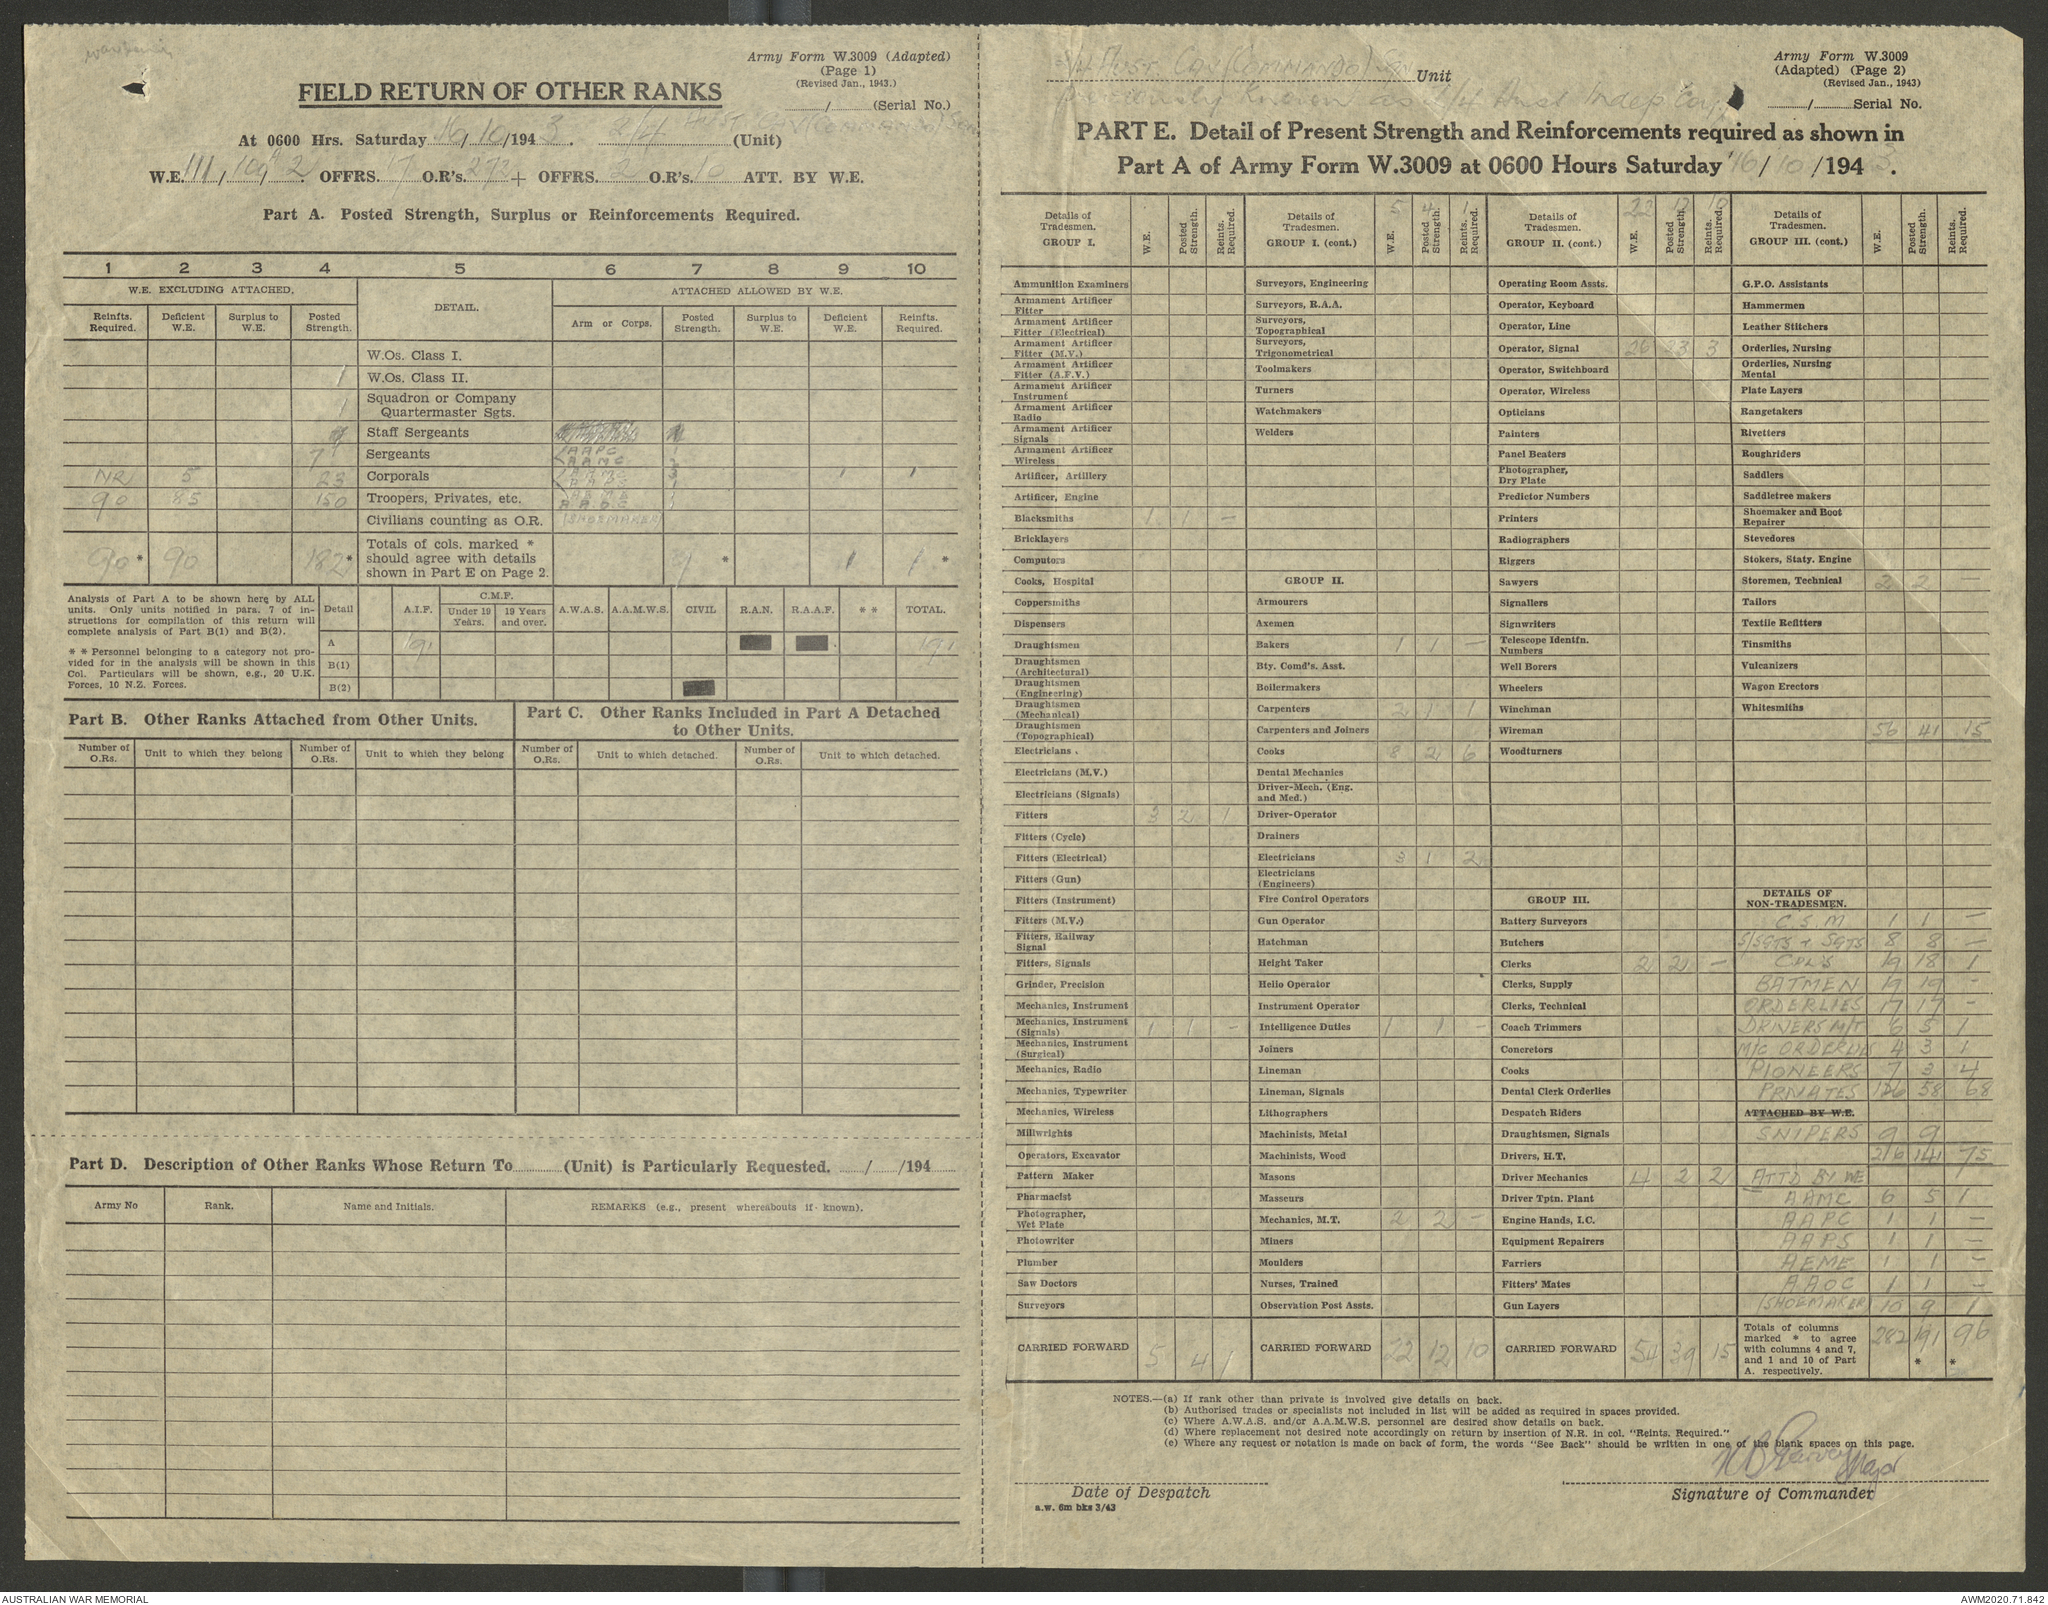 Army Form W.3009 (Adapted)
(Page 1)
(Revised Jan., 1943.)
/ (Serial No.)
FIELD RETURN OF OTHER RANKS
At 0600 Hrs. Saturday 16/10/1943. 2/4 Aust Cav (Commando) Sqn (Unit)
W.E. III, 10A, 2 OFFRS. 17 O.R's. 272 + OFFRS. 2 O.R's. 10 ATT. BY W.E.
Part A. Posted Strength, Surplus or Reinforcements Required.
1 2 3 4 5 6 7 8 9 10
W.E. EXCLUDING ATTACHED. DETAIL. ATTACHED ALLOWED BY W.E.
Reinfts. Required. Deficient W.E. Surplus to W.E. Posted Strength. Arm or Corps. Posted Strength. Surplus to W.E. Deficient W.E. Reinfts. Required.
W.Os. Class I.
1 W.Os. Class II.
1 Squadron or Company Quartermaster Sgts.
Staff Sergeants
7 Sergeants AAPC 1
AAMC 2
NR 5 23 Corporals AAMC 3 1 1
AAPS 1
90 85 150 Troopers, Privates, etc. AEME 1
AAOC 1
Civilians counting as O.R. (SHOEMAKER)
90* 90 182* Totals of cols. marked * should agree with details shown in Part E on Page 2. 9 * 1 1 *
Analysis of Part A to be shown here by ALL units. Only units notified in para. 7 of instructions for compilation of this return will complete analysis of Part B(1) and B(2).
* * Personnel belonging to a category not provided for in the analysis will be shown in this Col. Particulars will be shown, e.g., 20 U.K. Forces, 10 N.Z. Forces.
Detail A.I.F. C.M.F. Under 19 Years. 19 Years and over. A.W.A.S. A.A.M.W.S. CIVIL R.A.N. R.A.A.F. * * TOTAL.
A 191 191
B(1)
B(2)
Part B. Other Ranks Attached from Other Units.
Part C. Other Ranks Included in Part A Detached to Other Units.
Number of O.Rs. Unit to which they belong Number of O.Rs. Unit to which they belong Number of O.Rs. Unit to which detached. Number of O.Rs. Unit to which detached.
Part D. Description of Other Ranks Whose Return To (Unit) is Particularly Requested. / /194
Army No Rank. Name and Initials. REMARKS (e.g., present whereabouts if known).
2/4 Aust. Cav (Commando) Sqn Unit
previously known as 2/4 Aust Indep Coy
Army Form W.3009
(Adapted) (Page 2)
(Revised Jan., 1943)
/ Serial No.
PART E. Detail of Present Strength and Reinforcements required as shown in
Part A of Army Form W.3009 at 0600 Hours Saturday 16/10/1943.
Details of Tradesmen. GROUP I. W.E. Posted Strength. Reints. Required.
Ammunition Examiners
Armament Artificer Fitter
Armament Artificer Fitter (Electrical)
Armament Artificer Fitter (M.V.)
Armament Artificer Fitter (A.F.V.)
Armament Artificer Instrument
Armament Artificer Radio
Armament Artificer Signals
Armament Artificer Wireless
Artificer, Artillery
Artificer, Engine
Blacksmiths 1 1 –
Bricklayers
Computors
Cooks, Hospital
Coppersmiths
Dispensers
Draughtsmen
Draughtsmen (Architectural)
Draughtsmen (Engineering)
Draughtsmen (Mechanical)
Draughtsmen (Topographical)
Electricians
Electricians (M.V.)
Electricians (Signals)
Fitters 3 2 1
Fitters (Cycle)
Fitters (Electrical)
Fitters (Gun)
Fitters (Instrument)
Fitters (M.V.)
Fitters, Railway Signal
Fitters, Signals
Grinder, Precision
Mechanics, Instrument
Mechanics, Instrument (Signals) 1 1 –
Mechanics, Instrument (Surgical)
Mechanics, Radio
Mechanics, Typewriter
Mechanics, Wireless
Millwrights
Operators, Excavator
Pattern Maker
Pharmacist
Photographer, Wet Plate
Photowriter
Plumber
Saw Doctors
Surveyors
CARRIED FORWARD 5 4 1
Details of Tradesmen. GROUP I. (cont.) W.E. Posted Strength. Reints. Required.
5 4 1
Surveyors, Engineering
Surveyors, R.A.A.
Surveyors, Topographical
Surveyors, Trigonometrical
Toolmakers
Turners
Watchmakers
Welders
GROUP II.
Armourers
Axemen
Bakers 1 1 –
Bty. Comd's. Asst.
Boilermakers
Carpenters 2 1 1
Carpenters and Joiners
Cooks 8 2 6
Dental Mechanics
Driver-Mech. (Eng. and Med.)
Driver-Operator
Drainers
Electricians 3 1 2
Electricians (Engineers)
Fire Control Operators
Gun Operator
Hatchman
Height Taker
Helio Operator
Instrument Operator
Intelligence Duties 1 1 –
Joiners
Lineman
Lineman, Signals
Lithographers
Machinists, Metal
Machinists, Wood
Masons
Masseurs
Mechanics, M.T. 2 2
Miners
Moulders
Nurses, Trained
Observation Post Assts.
CARRIED FORWARD 22 12 10
Details of Tradesmen. GROUP II. (cont.) W.E. Posted Strength. Reints. Required.
22 12 10
Operating Room Assts.
Operator, Keyboard
Operator, Line
Operator, Signal 26 23 3
Operator, Switchboard
Operator, Wireless
Opticians
Painters
Panel Beaters
Photographer, Dry Plate
Predictor Numbers
Printers
Radiographers
Riggers
Sawyers
Signallers
Signwriters
Telescope Identfn. Numbers
Well Borers
Wheelers
Winchman
Wireman
Woodturners
GROUP III.
Battery Surveyors
Butchers
Clerks 2 2 –
Clerks, Supply
Clerks, Technical
Coach Trimmers
Concretors
Cooks
Dental Clerk Orderlies
Despatch Riders
Draughtsmen, Signals
Drivers, H.T.
Driver Mechanics 4 2 2
Driver Tptn. Plant
Engine Hands, I.C.
Equipment Repairers
Farriers
Fitters' Mates
Gun Layers
CARRIED FORWARD 54 39 15
Details of Tradesmen. GROUP III. (cont.) W.E. Posted Strength. Reints. Required.
G.P.O. Assistants
Hammermen
Leather Stitchers
Orderlies, Nursing
Orderlies, Nursing Mental
Plate Layers
Rangetakers
Rivetters
Roughriders
Saddlers
Saddletree makers
Shoemaker and Boot Repairer
Stevedores
Stokers, Staty. Engine
Storemen, Technical 2 2 –
Tailors
Textile Refitters
Tinsmiths
Vulcanizers
Wagon Erectors
Whitesmiths
56 41 15
DETAILS OF NON-TRADESMEN.
C.S.M 1 1 –
S/SGTS + SGTS 8 8 –
CPLS 19 18 1
BATMEN 19 19 –
ORDERLIES 17 17 –
DRIVERS M/T 6 5 1
M/C ORDERLIES 4 3 1
PIONEERS 7 3 4
PRIVATES 126 58 68
ATTACHED BY W.E.
SNIPERS 9 9
216 141 75
ATTD BY WE
AAMC 6 5 1
AAPC 1 1 –
AAPS 1 1 –
AEME 1 1 –
AAOC 1 1 –
(SHOEMAKER) 10 9 1
Totals of columns marked * to agree with columns 4 and 7, and 1 and 10 of Part A. respectively. 282 191 * 96 *
NOTES.—(a) If rank other than private is involved give details on back.
(b) Authorised trades or specialists not included in list will be added as required in spaces provided.
(c) Where A.W.A.S. and/or A.A.M.W.S. personnel are desired show details on back.
(d) Where replacement not desired note accordingly on return by insertion of N.R. in col. "Reints. Required."
(e) Where any request or notation is made on back of form, the words "See Back" should be written in one of the blank spaces on this page.
KB Garvey Major
Date of Despatch
Signature of Commander
a.w. 6m bks 3/43
AUSTRALIAN WAR MEMORIAL
AWM2020.71.842